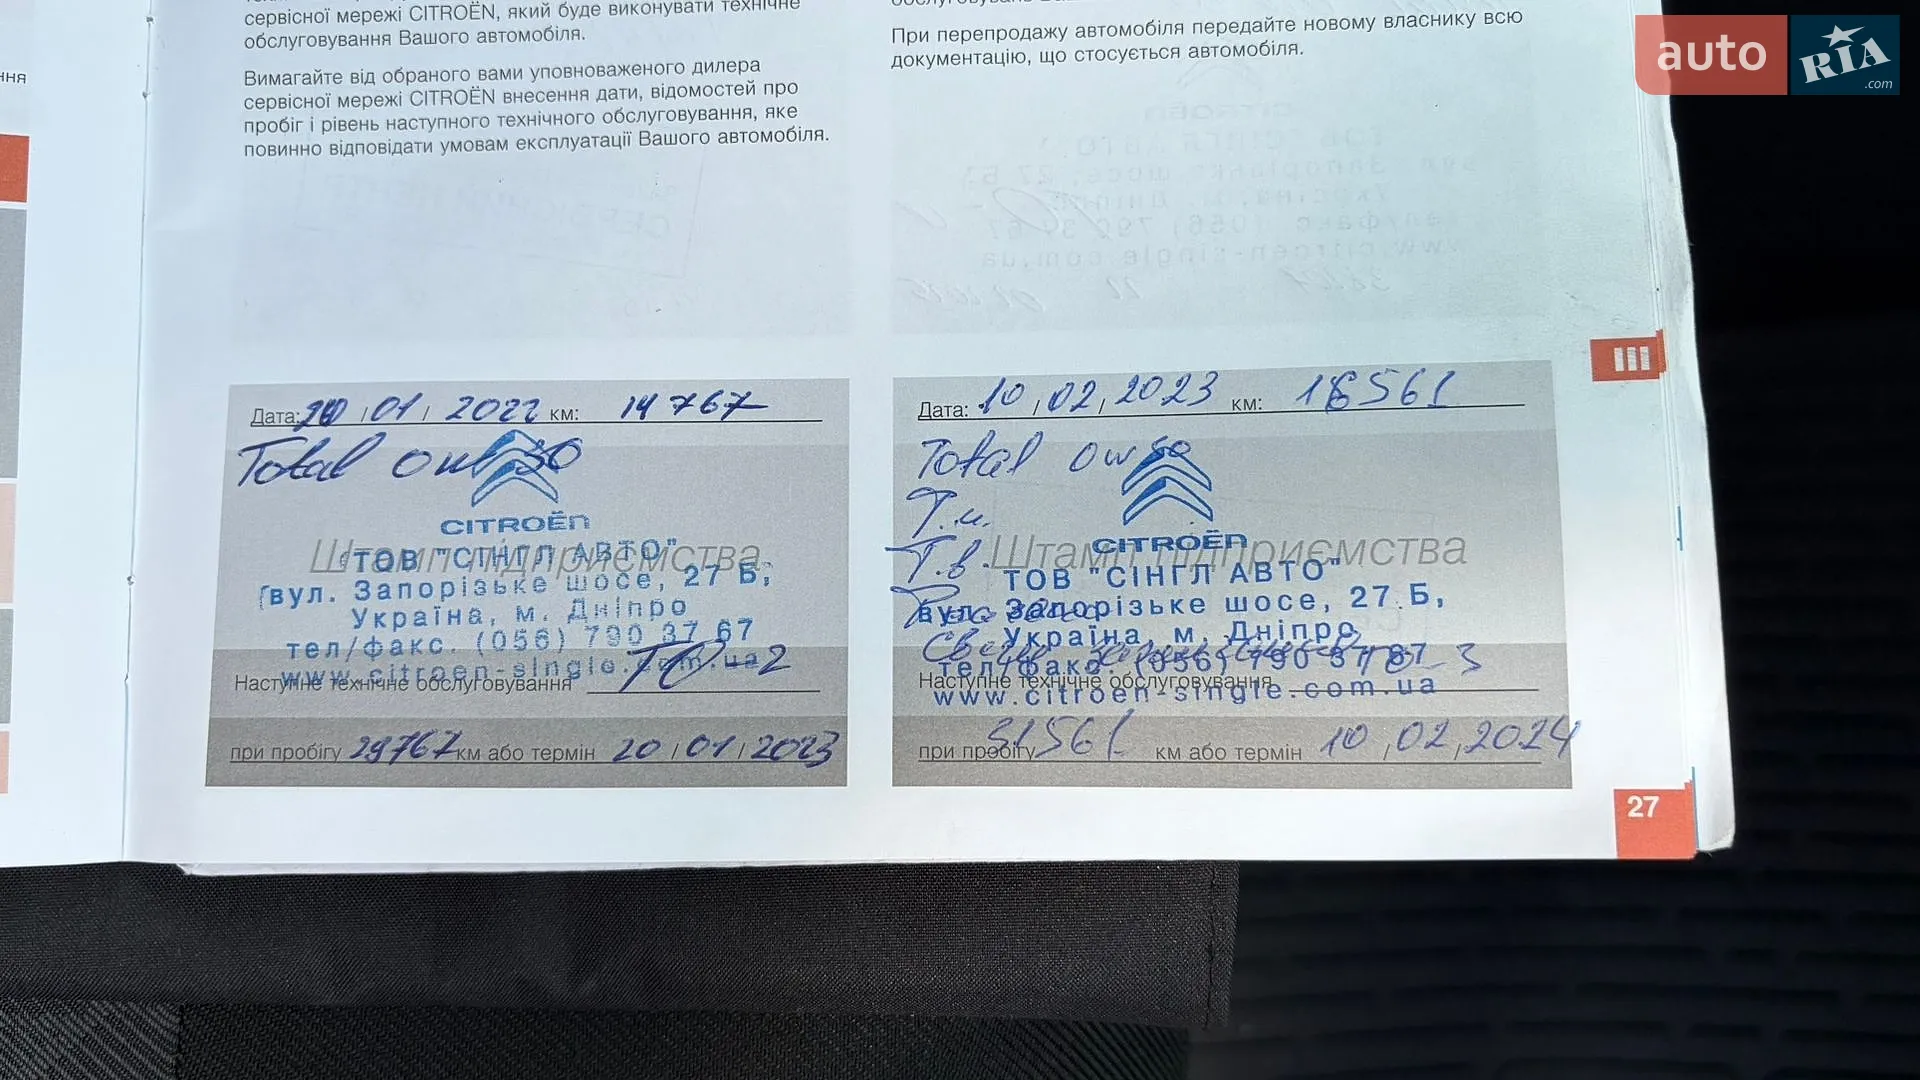 сервісної мережі CITROËN, який буде виконувати технічне
обслуговування Вашого автомобіля.
Вимагайте від обраного вами уповноваженого дилера
сервісної мережі CITROËN внесення дати, відомостей про
пробіг і рівень наступного технічного обслуговування, яке
повинно відповідати умовам експлуатації Вашого автомобіля.
При перепродажу автомобіля передайте новому власнику всю
документацію, що стосується автомобіля.
auto RIA .com
ння
III
Дата: 20/01/2022 км: 14767
Total 0w30
CITROËN
Штамп підприємства
ТОВ "СІНГЛ АВТО"
вул. Запорізьке шосе, 27 Б,
Україна, м. Дніпро
тел/факс. (056) 790 37 67
www.citroen-single.com.ua
Наступне технічне обслуговування ТО-2
при пробігу 29767 км або термін 20/01/2023
Дата: 10,02,2023 км: 16561
Total 0w30
Т.м.
Т.в.
CITROËN
Штамп підприємства
ТОВ "СІНГЛ АВТО"
вул. Запорізьке шосе, 27 Б,
Україна, м. Дніпро
тел/факс (056) 790 37 67
www.citroen-single.com.ua
Наступне технічне обслуговування ТО-3
при пробігу 31561 км або термін 10,02,2024
27